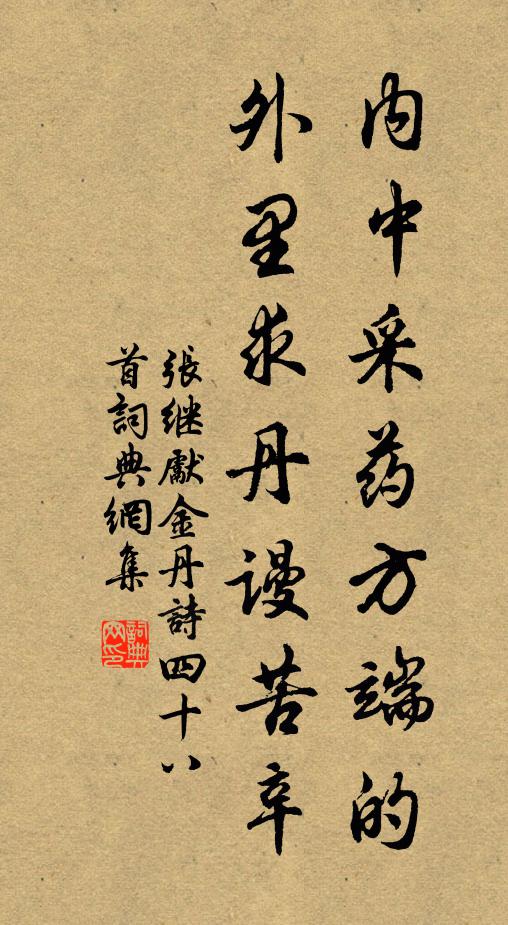 内中采药方端的
外里求丹谩苦辛
張继獻金丹詩四十八
首詞典網集
詞典
网印